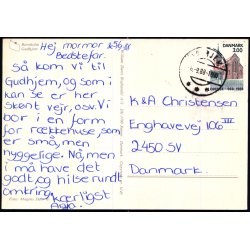 Bornholm
Gudhjem
Hej mormor &
Bedstefar.
Så kom vi til
Gudhjem, og som i
kan se er her
skønt vejr, osv. Vi
bor i en form
for rækkehuse, som
er små, men
hyggelige. Nå, men
i må have det
godt, og hilse rundt
omkring.
Kærligst
DANMARK
3.00
K&A Christensen
Enghavevej 106 III
2450 SV
Danmark.